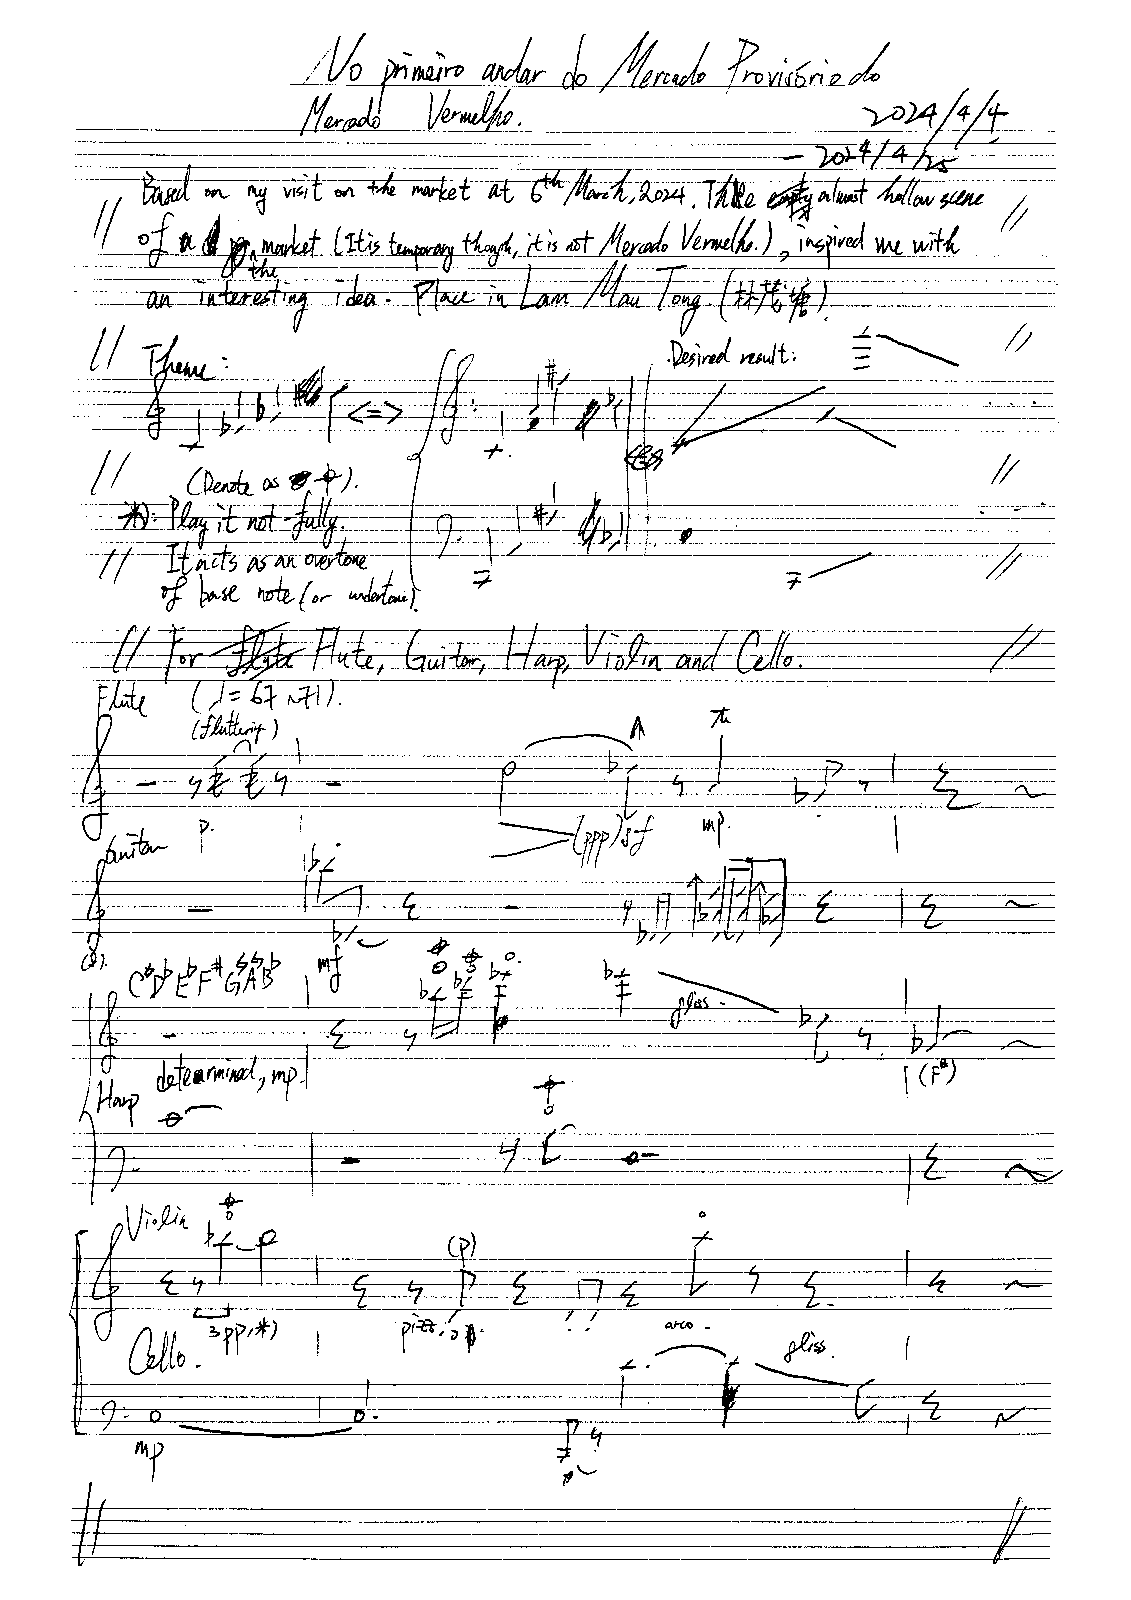 No primeiro andar do Mercado Provisório do
Mercado Vermelho.
2024/4/4
- 2024/4/25
Based on my visit on the market at 6th March, 2024. The almost hollow scene
of the market (It is temporary though, it is not Mercado Vermelho.), inspired me with
an interesting idea. Place in Lam Mau Tong (林茂塘).
Theme:
Desired result:
<=>
(Denote as ф).
*): Play it not fully.
It acts as an overtone
of base note (or undertone).
For Flute, Guitar, Harp, Violin and Cello.
Flute (♩= 67 ~71).
(fluttering)
p.
(ppp) sf
mp.
Guitar
mf
C♮ D♭ E♭ F# G♮ A♮ B♭
gliss.
(F#)
Harp
determined, mp.
Violin
(p)
3 pp, *)
pizz,
arco.
Cello.
gliss.
mp